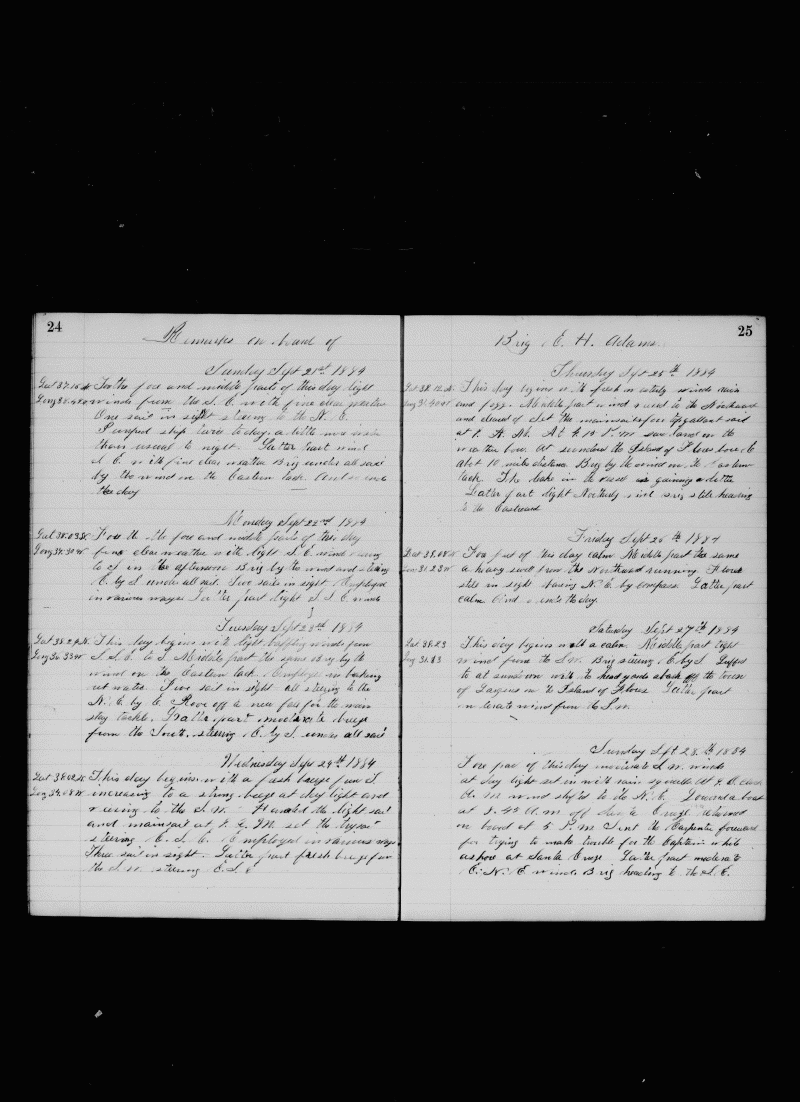 24
Remarks on board of
Sunday Sept 21st 1884
Lat 37.15 N For the fore and middle parts of this day light
Long winds from the S. E. with fine clear weather
One sail in sight steering to the N. E.
Pumped ship twice today, a little more water
than usual to night. Latter part wind
S. E. with fine clear weather Brig under all sail
by the wind on the Eastern tack And so ends
this day
Monday Sept 22nd 1884
Lat 38.03 N For the fore and middle parts of this day
Long 37.30 W fine clear weather with light S. E. wind
to in the afternoon Brig by the wind and steering
E. by S under all sail. Two sail in sight Employed
in various ways Latter part light S. S. E. winds
Tuesday Sept 23rd 1884
Lat 38.24 N. This day begins with light baffling winds from
Long 36.33 W S. S. E. to S. Middle part the same Brig by the
wind on the Eastern tack. Employed in breaking
out water. Two sail in sight all steering to the
N. E. by E. Rove off a new fas for the main
stay tackle. Latter part moderate breeze
from the steering E. by S. under all sail
Wednesday Sept 24th 1884
Lat 38.02 N This day begins with a fresh breeze from S.
Long 34.08 W increasing to a strong breeze at day light and
veering to the S. W. Hauled the light sail
and mainsail at P. M. set the trysail
steering E. S. E. Employed in various ways
Three sail in sight. Latter part fresh breeze from
the S. W. steering E. S. E
25
Brig E. H. Adams
Thursday Sept 25th 1884
Lat 38.12 N This day begins with fresh westerly winds rain
Long 31.40 W and foggy. Middle part wind to the Northward
and cleared off Set the mainsail fore topgallant sail
at 8 A. M. At P. M saw land on the
weather bow. At sundown the Island of Flores bore E
abot 10 miles distance Brig by the wind on the Eastern
tack. The leak in the vessel is gaining a little
Latter part light Northerly wind brig still heading
to the Eastward
Friday Sept 26th 1884
Lat 38.08 N Fore part of this day calm Middle part the same
Long 31.23 W a heavy swell from the Northward running Flores
still in sight baring N. E. by compass. Latter part
calm And so ends the day.
Saturday Sept 27th 1884
Lat 38.23 This day begins with a calm. Middle part light
Long 31.03 wind from the S. W. Brig steering E. by S. Luffed
to at sundown with the head yards aback off the town
of on the Island of Flores Latter part
moderate wind from the S. W.
Sunday Sept 28th 1884
Fore part of this day moderate S. W. winds
at day light set in with rain squalls At
A. M wind shifted to the N. E. Lowered a boat
at 9.45 A. M off Santa Cruze returned
on board at 5 P. M Sent the Carpenter forward
for trying to make trouble for the Captain while
ashore at Santa Cruze Latter part moderate
E. N. E winds Brig heading to the S. E.